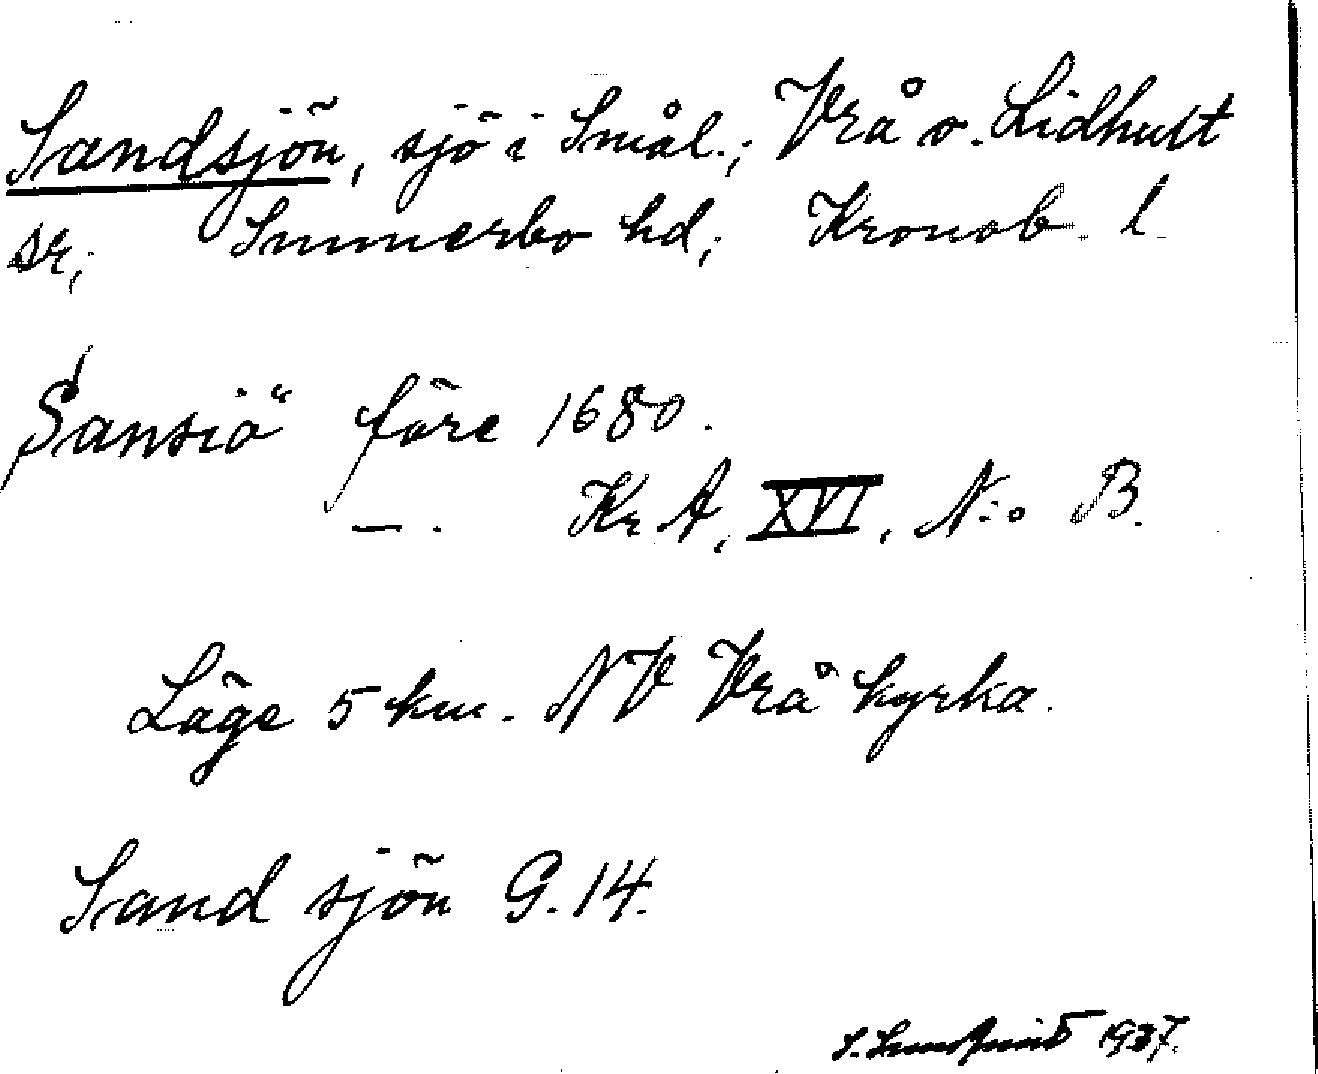 Sandsjön, sjö i Smål.; Vrå o. Lidhult
sr; Sunnerbo hd; Kronob. l.
Sansiö" före 1680.
—. Kr A, XVI, N:o B.
Läge 5 km. NV Vrå kyrka.
Sand sjön G. 14.
1937.